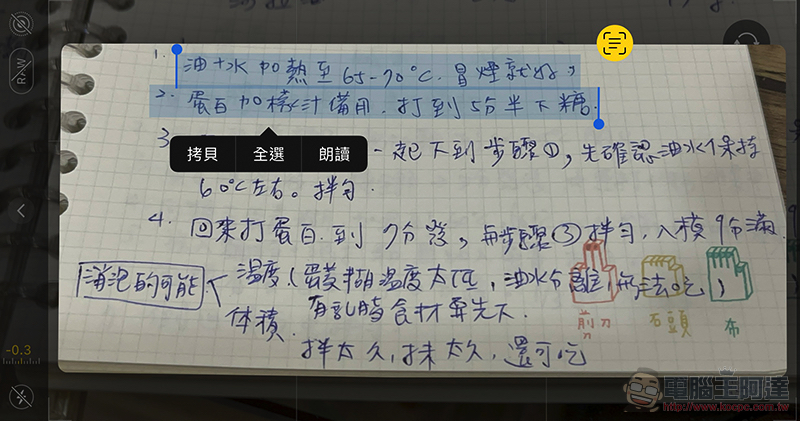 1. 油+水加熱至65-70°C.冒煙就好,
2. 蛋白加檸汁備用.打到5分半下糖.
拷貝 全選 朗讀
3. 一起下到步驟①,先確認油水保持
60°C左右。拌勻.
4. 回來打蛋白.到7分發,再步驟③拌勻,入模9分滿.
消泡的可能
溫度(蛋黃糊溫度太低,油水分離,無法吃)
有乳脂食材要先下.
體積.
拌太久,抹太久,還可吃
剪刀 石頭 布
RAW
-0.3
電腦王阿達
http://www.kocpc.com.tw